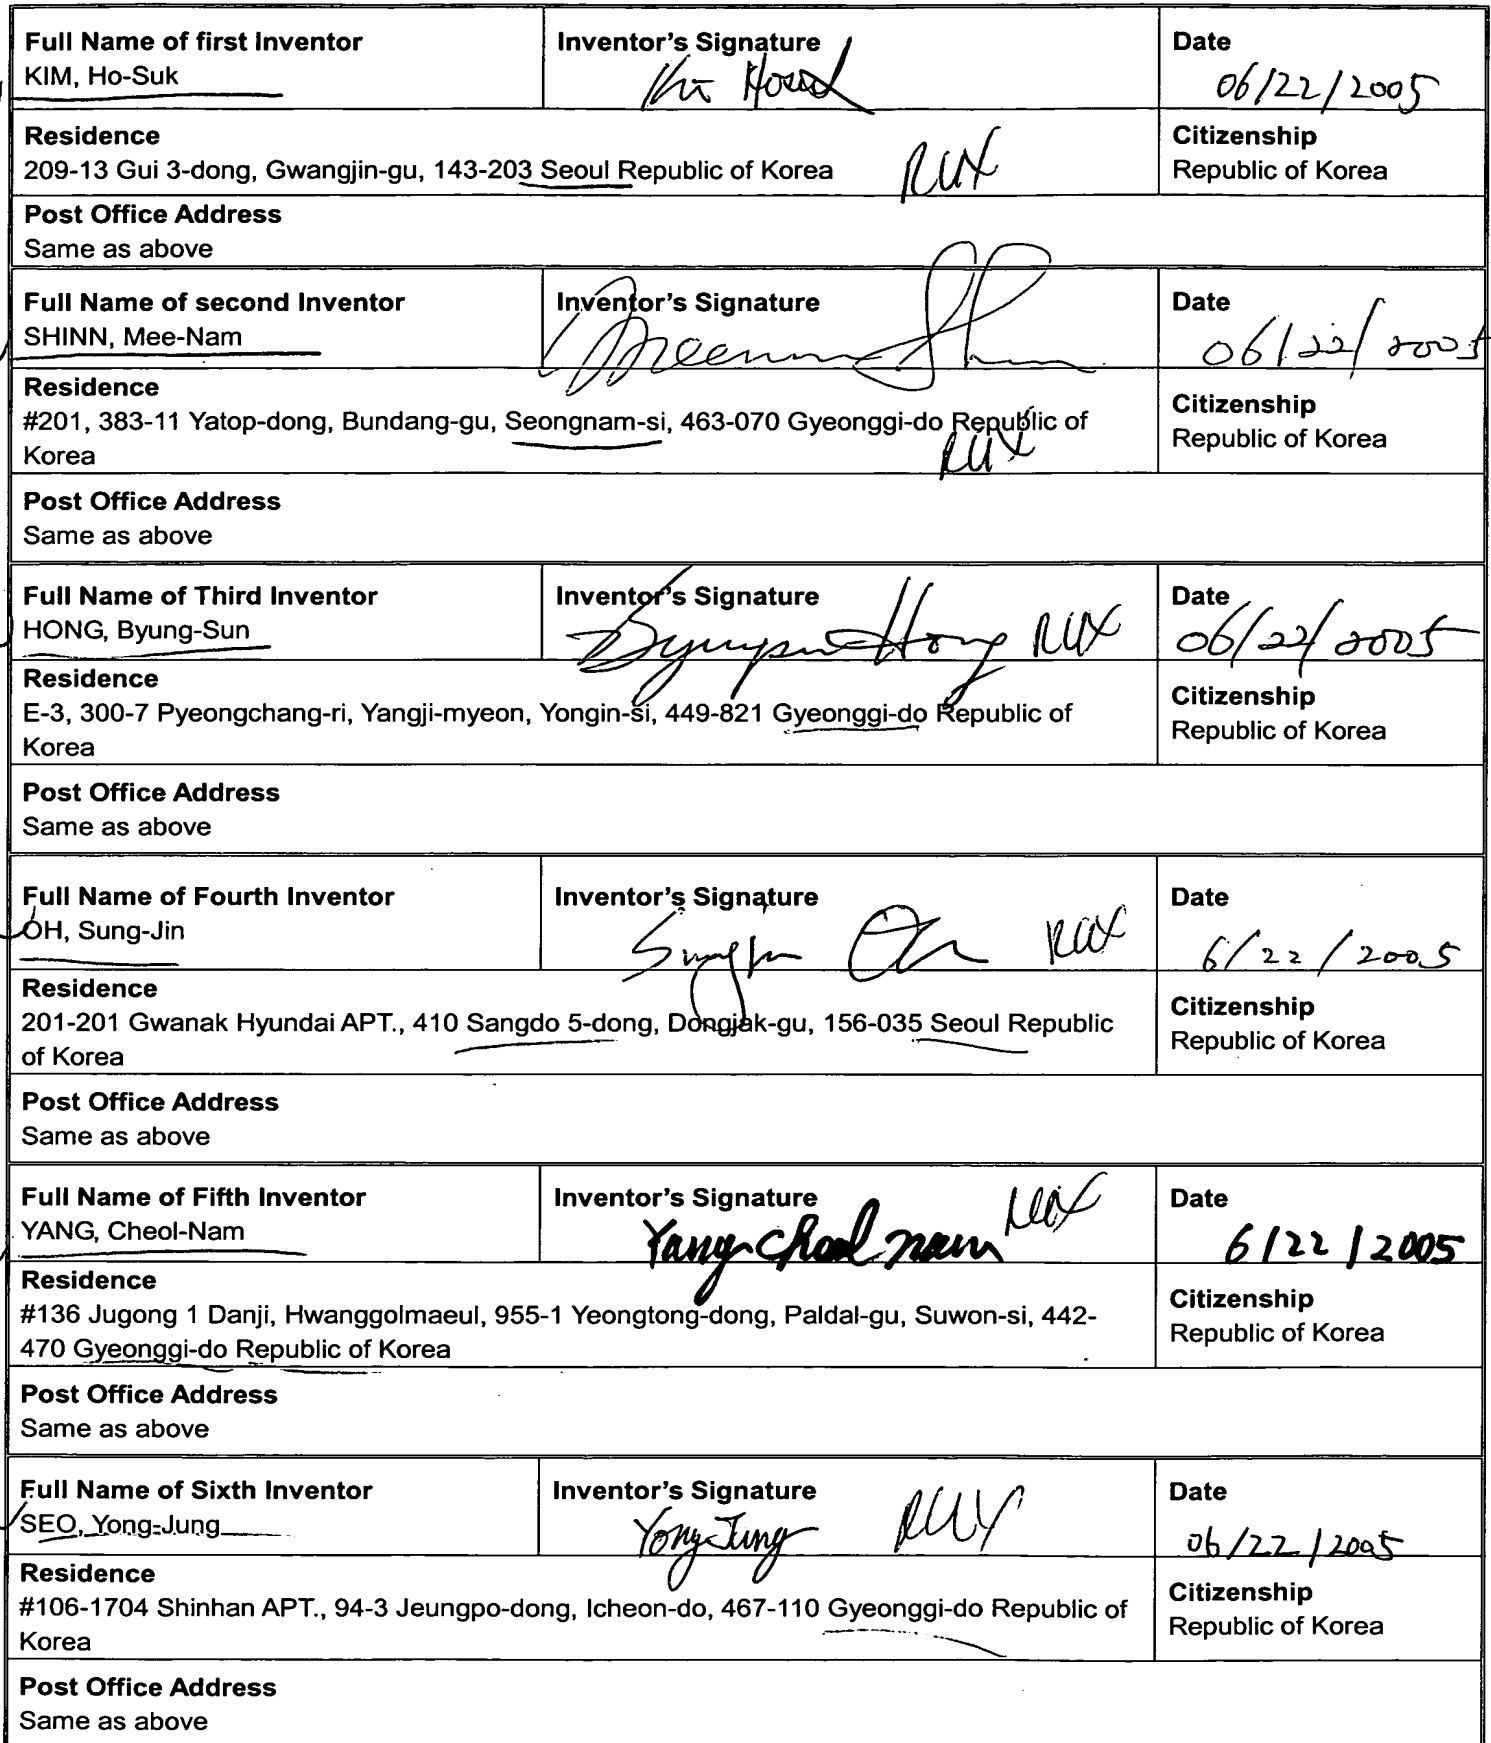 Full Name of first Inventor
KIM, Ho-Suk
Inventor's Signature
Date
06/22/2005
Residence
209-13 Gui 3-dong, Gwangjin-gu, 143-203 Seoul Republic of Korea
Citizenship
Republic of Korea
Post Office Address
Same as above
Full Name of second Inventor
SHINN, Mee-Nam
Inventor's Signature
Date
06/22/2005
Residence
#201, 383-11 Yatop-dong, Bundang-gu, Seongnam-si, 463-070 Gyeonggi-do Republic of
Korea
Citizenship
Republic of Korea
Post Office Address
Same as above
Full Name of Third Inventor
HONG, Byung-Sun
Inventor's Signature
Hong
Date
06/22/2005
Residence
E-3, 300-7 Pyeongchang-ri, Yangji-myeon, Yongin-si, 449-821 Gyeonggi-do Republic of
Korea
Citizenship
Republic of Korea
Post Office Address
Same as above
Full Name of Fourth Inventor
OH, Sung-Jin
Inventor's Signature
Date
6/22/2005
Residence
201-201 Gwanak Hyundai APT., 410 Sangdo 5-dong, Dongjak-gu, 156-035 Seoul Republic
of Korea
Citizenship
Republic of Korea
Post Office Address
Same as above
Full Name of Fifth Inventor
YANG, Cheol-Nam
Inventor's Signature
Yang cheol nam
Date
6/22/2005
Residence
#136 Jugong 1 Danji, Hwanggolmaeul, 955-1 Yeongtong-dong, Paldal-gu, Suwon-si, 442-
470 Gyeonggi-do Republic of Korea
Citizenship
Republic of Korea
Post Office Address
Same as above
Full Name of Sixth Inventor
SEO, Yong-Jung
Inventor's Signature
Yong Jung
Date
06/22/2005
Residence
#106-1704 Shinhan APT., 94-3 Jeungpo-dong, Icheon-do, 467-110 Gyeonggi-do Republic of
Korea
Citizenship
Republic of Korea
Post Office Address
Same as above